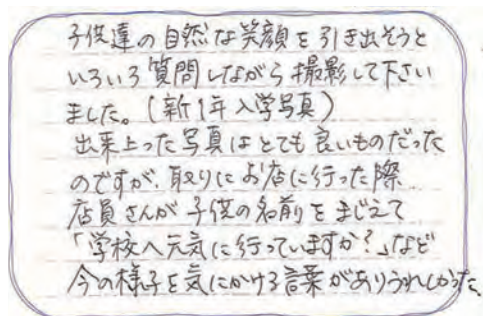 子供達の自然な笑顔を引き出そうと
いろいろ質問しながら撮影して下さい
ました。(新1年入学写真)
出来上った写真はとても良いものだった
のですが、取りにお店に行った際
店員さんが子供の名前をまじえて
「学校へ元気に行っていますか?」など
今の様子を気にかける言葉がありうれしかった。